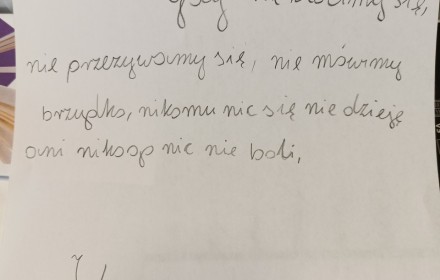 nie przezywamy się, nie mówimy
brzydko, nikomu nic się nie dzieję
ani nikoop nic nie boli,